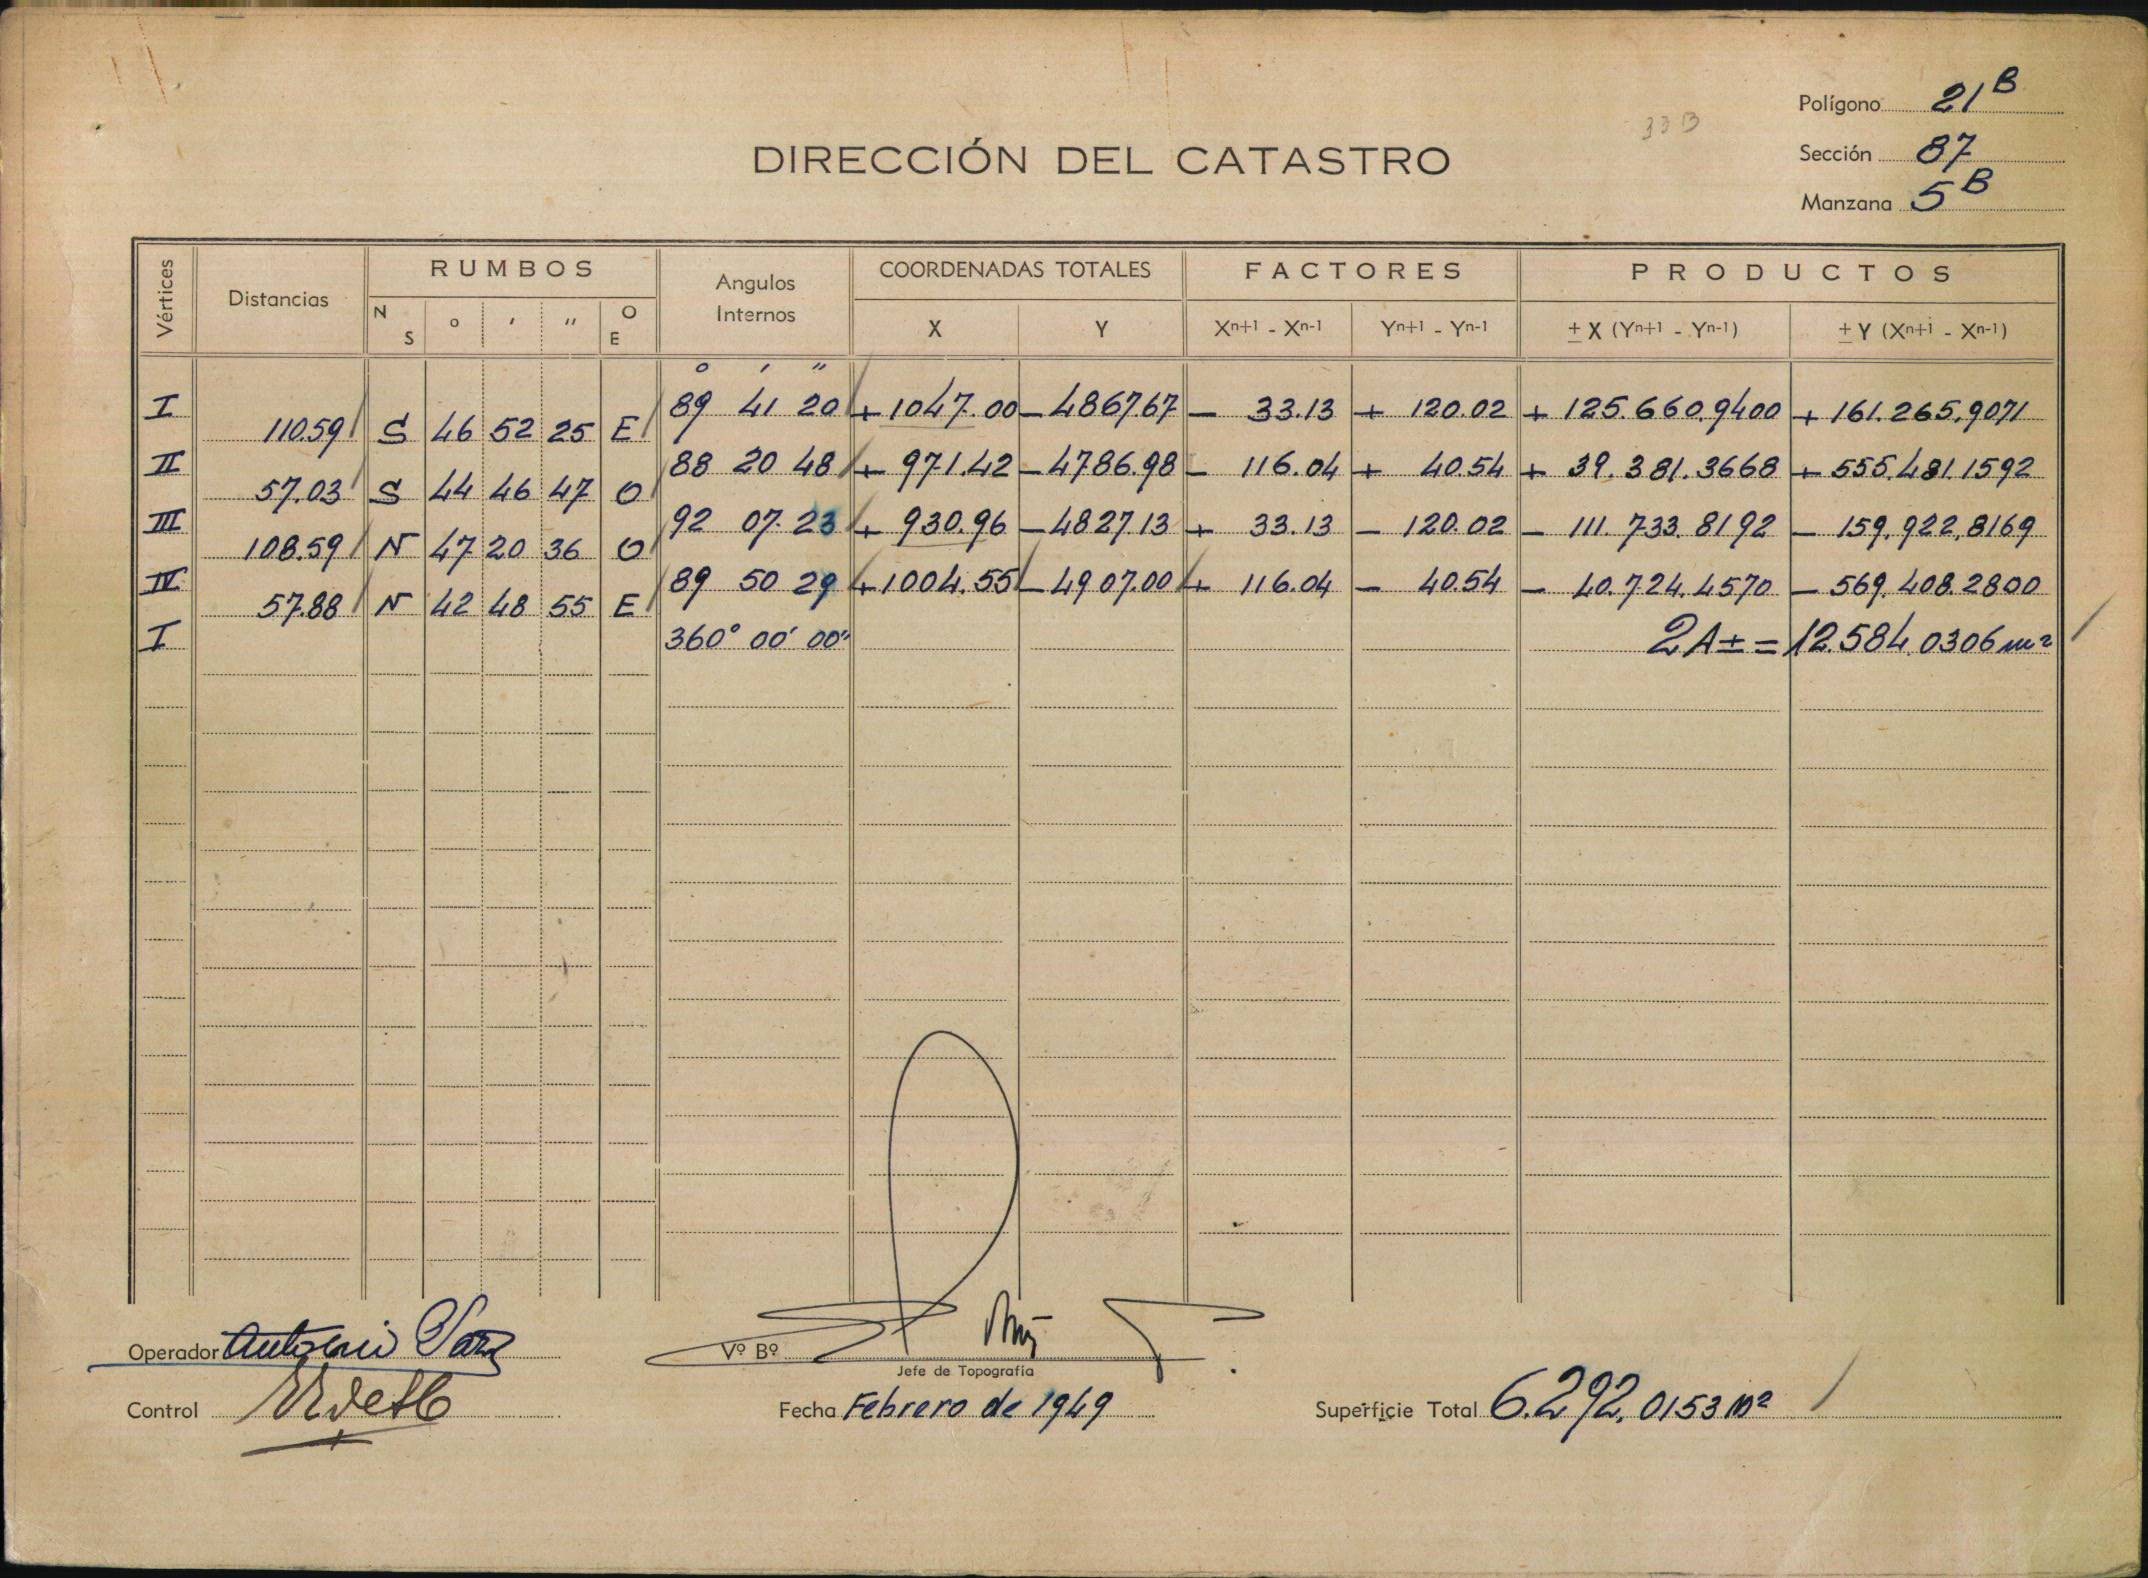 Polígono 21 B
33 B
DIRECCIÓN DEL CATASTRO
Sección 87
Manzana 5 B
Vértices Distancias RUMBOS Angulos Internos COORDENADAS TOTALES FACTORES PRODUCTOS
N S o ' '' O E X Y Xn+1 - Xn-1 Yn+1 - Yn-1 ± X (Yn+1 - Yn-1) ± Y (Xn+1 - Xn-1)
o ' ''
I 89 41 20 + 1047.00 - 4867.67 - 33.13 + 120.02 + 125.660.9400 + 161.265.9071
110.59 S 46 52 25 E
II 88 20 48 + 971.42 - 4786.98 - 116.04 + 40.54 + 39.381.3668 + 555.481.1592
57.03 S 44 46 47 O
III 92 07 23 + 930.96 - 4827.13 + 33.13 - 120.02 - 111.733.8192 - 159.922.8169
108.59 N 47 20 36 O
IV 89 50 29 + 1004.55 - 4907.00 + 116.04 - 40.54 - 40.724.4570 - 569.408.2800
57.88 N 42 48 55 E
I 360° 00' 00'' 2A ± = 12.584.0306 m²
Operador Antonio
Vº Bº
Jefe de Topografía
Control
Fecha Febrero de 1949
Superficie Total 6.292.0153 m²